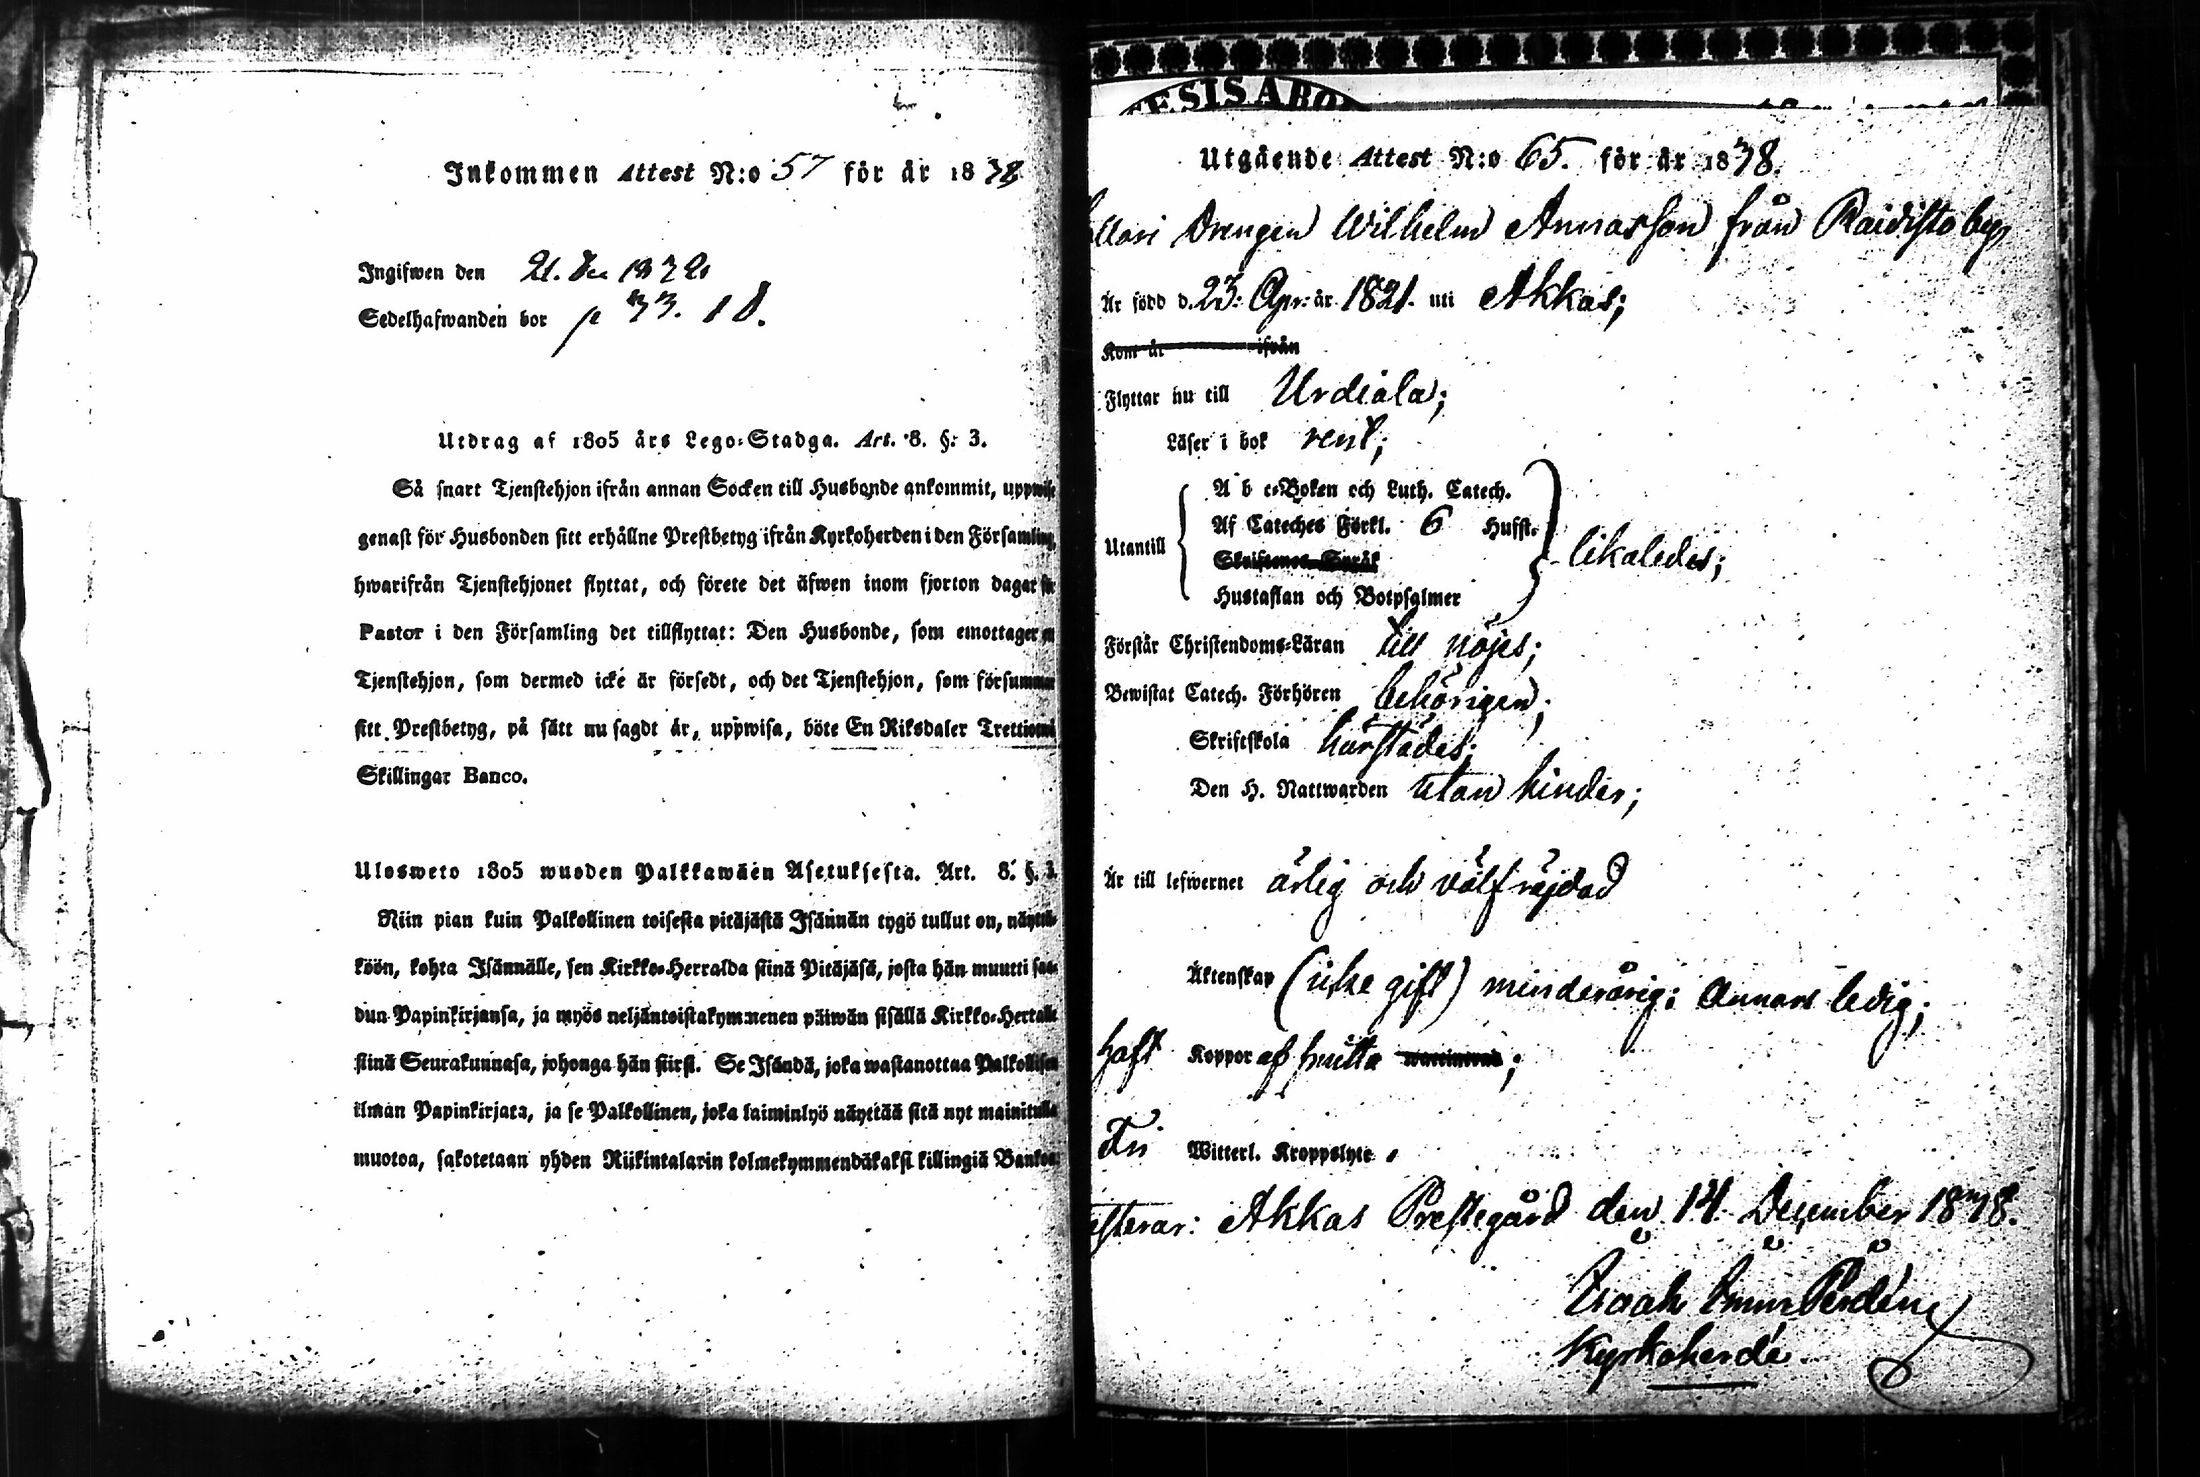 Inkommen Attest N:o 57 för år 1838
Ingifwen den 21. Dec 1838
Sedelhafwanden bor p 33.
Utdrag af 1805 års Lego-Stadga. Art. 8. §: 3.
Så snart Tjenstehjon ifrån annan Socken till Husbonde ankommit, uppwise
genast för Husbonden sitt erhållne Prestbetyg ifrån Kyrkoherden i den Församling,
hwarifrån Tjenstehjonet flyttat, och förete det äfwen inom fjorton dagar för
Pastor i den Församling det tillflyttat: Den Husbonde, som emottager en
Tjenstehjon, som dermed icke är försedt, och det Tjenstehjon, som försummar
sitt Prestbetyg, på sätt nu sagdt är, uppwisa, böte En Riksdaler Trettiotwå
Skillingar Banco.
Ulosweto 1805 wuoden Palkkawäen Asetuksesta. Art. 8. §. 3.
Niin pian kuin Palkollinen toisesta pitäjästä Isännän tygö tullut on, näyttä-
köön, kohta Isännälle, sen Kirkko-Herralda siinä Pitäjäsä, josta hän muutti saa-
dun Papinkirjansa, ja myös neljäntoistakymmenen päiwän sisällä Kirkko-Herralle
siinä Seurakunnasa, johonga hän siirsi. Se Isändä, joka wastanottaa Palkollisen
ilman Papinkirjata, ja se Palkollinen, joka laiminlyö näyttää sitä nyt mainitulla
muotoa, sakotetaan yhden Riikintalarin kolmekymmendäkaksi killingiä Bankoa.
ESIS ABO
Utgående Attest N:o 65. för år 1838.
Drengen Wilhelm Annasson från Raidisto by,
Är född d. 23: Apr: år 1821. uti Akkas;
Kom år ifrån
Flyttar nu till Urdiala;
Läser i bok rent;
A b c-Boken och Luth. Catech.
Utantill Af Cateches Förkl. 6 Hufst. likaledes;
Skriftenes Språk
Hustaflan och Botpsalmer
Förstår Christendoms-Läran till nöjes;
Bewistat Catech. Förhören behörigen;
Skriftskola härstädes;
Den H. Nattwarden utan hinder;
Är till lefwernet ärlig och välfräjdad
Äktenskap (icke gift) minderårig: annars ledig;
haft Koppor af smitta ;
Fri Witterl. Kroppslyte.
Akkas Prestegård den 14. December 1838.
Kyrkoherde.